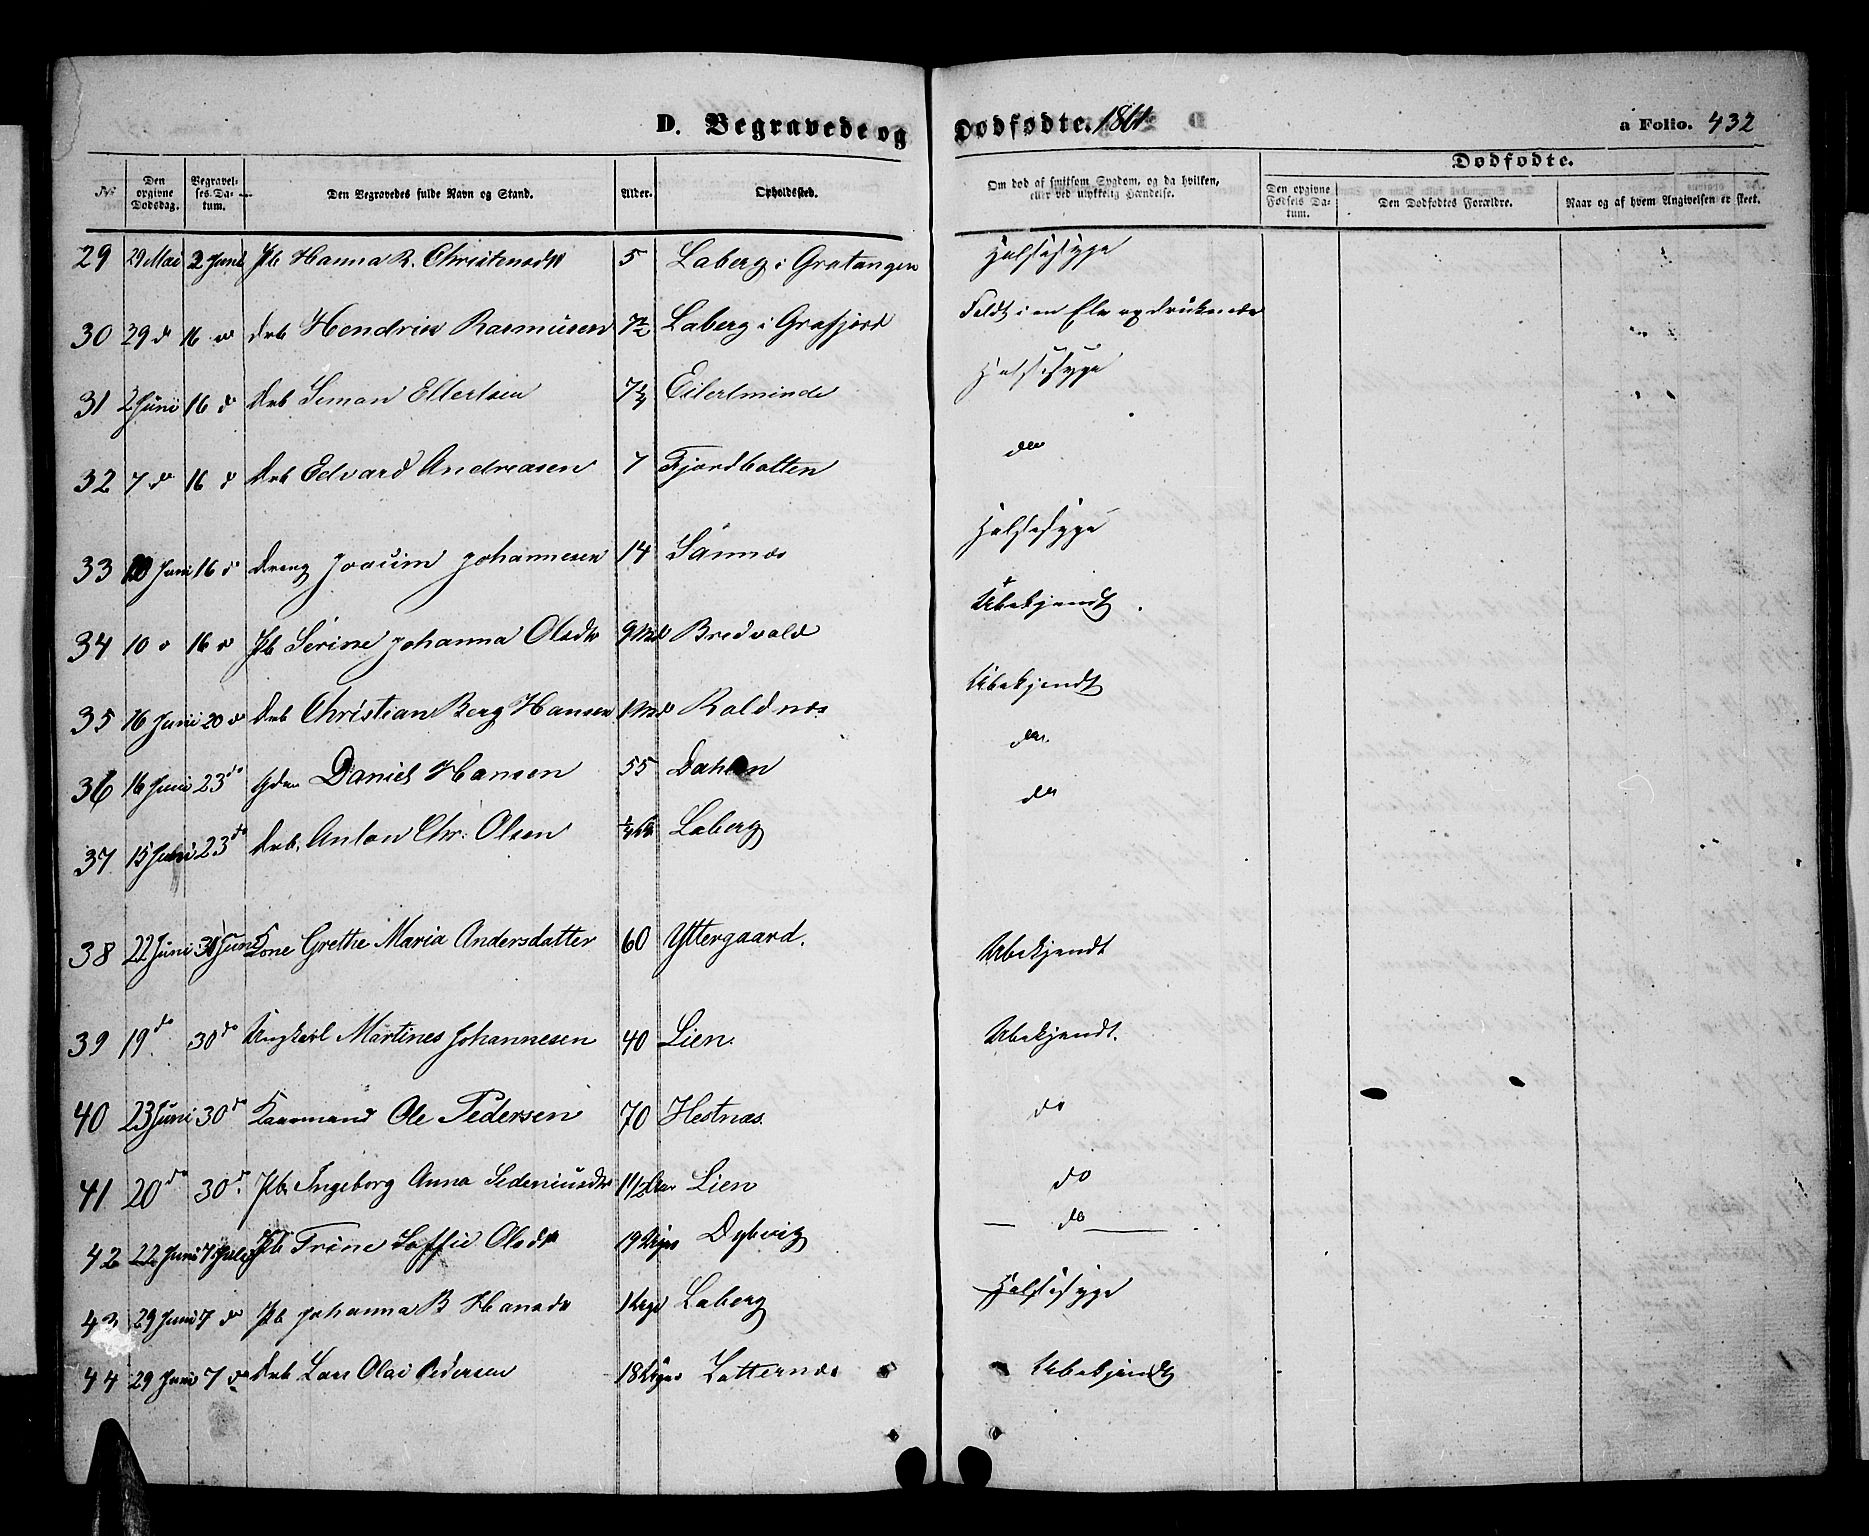 D. Begravede og Dødfødte. 1861 a Folio. 432
Dødfødte.
No Den opgivne Dødsdag. Begravelses-Datum. Den Begravedes fulde Navn og Stand. Alder. Opholdssted. Om død af smitsom Sygdom, og da hvilken, eller ved ulykkelig Hændelse. Den opgivne Fødsels Datum. Den Dødfødtes Forældre. Naar og af hvem Angivelsen er skeet.
29 29 Mai 2 Juni Pb Hanna R. Christensdtr 5 Laberg i Gratangen Halssyge
30 29 d 16 do Drb Hendrik Rasmusen 7½ Laberg i Grafjord Faldt i en Elv og druknede
31 2 Juni 16 d Drb Simon Ellertsen 7¼ Eilertminde Halssyge
32 7 do 16 d Drb Edvard Andreasen 7 Fjordbotten do
33 10 Juni 16 d Dreng Joacim Johannesen 14 Sannæs Halssyge
34 10 d 16 d Pb Serine Johanna Olsdtr 9 Md Bredvold Ubekjendt
35 16 Juni 20 d Drb Christian Berg Hansen 1 Md Roldnæs Ubekjendt
36 16 Juni 23 do Gdm Daniel Hansen 55 Dahlen do
37 15 Juni 23 do Drb. Anton Chr: Olsen Laberg do
38 22 Juni 30 Juni Kone Grethe Maria Andersdatter 60 Yttergaard. Ubekjendt
39 19 do 30 do Ungkarl Martines Johannesen 40 Lien. Ubekjendt.
40 23 Juni 30 do Kaarmand Ole Pedersen 70 Hestnæs. do
41 20 do 30 d. Pb. Ingeborg Anna Sedeniusdtr 1½ Lien do
42 22 Juni 7 Juli Pb Trine Soffie Olsdtr 19 Dage Dybvig do
43 29 Juni 7 do Pb Johanna B Hansdtr 1 Laberg Halssyge
44 29 Juni 7 do Drb Lars Olai Pedersen 18 Dage Latternæs Ubekjendt